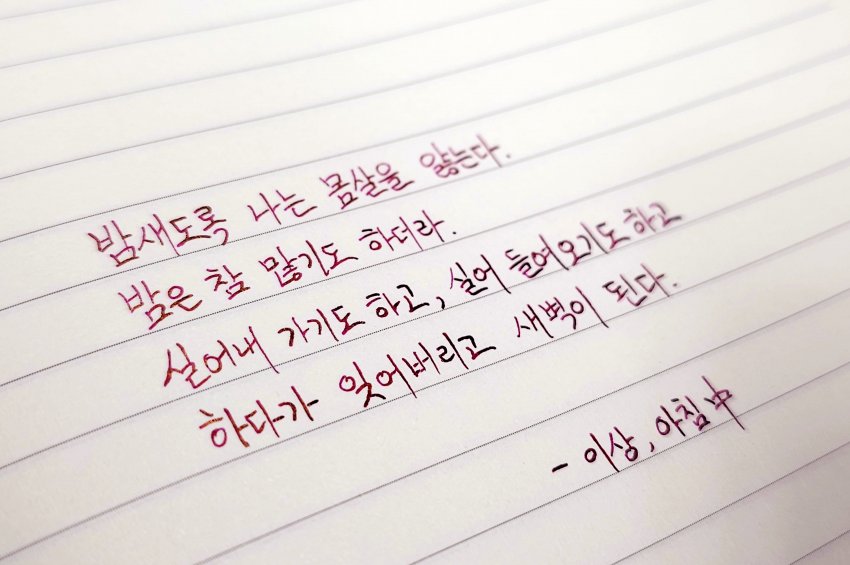 밤새도록 나는 몸살을 앓는다.
밤은 참 많기도 하더라.
실어내 가기도 하고, 실어 들여오기도 하고
하다가 잊어버리고 새벽이 된다.
- 이상, 아침 中